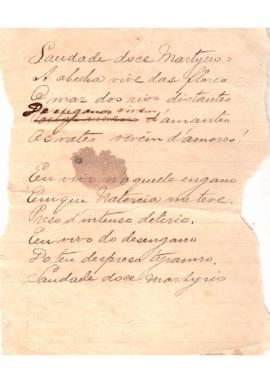 Saudade doce Martyrio =
A abelha vive das flores
O mar dos rios distantes
Desenganos vivem amantes
Os vates vivem d'amores!
Eu vivo n'aquele engano
Em que Natercia me teve
Preso d'intenso delirio.
Eu vivo do desengano
Do teu despreso tyranno.
Saudade doce Martyrio